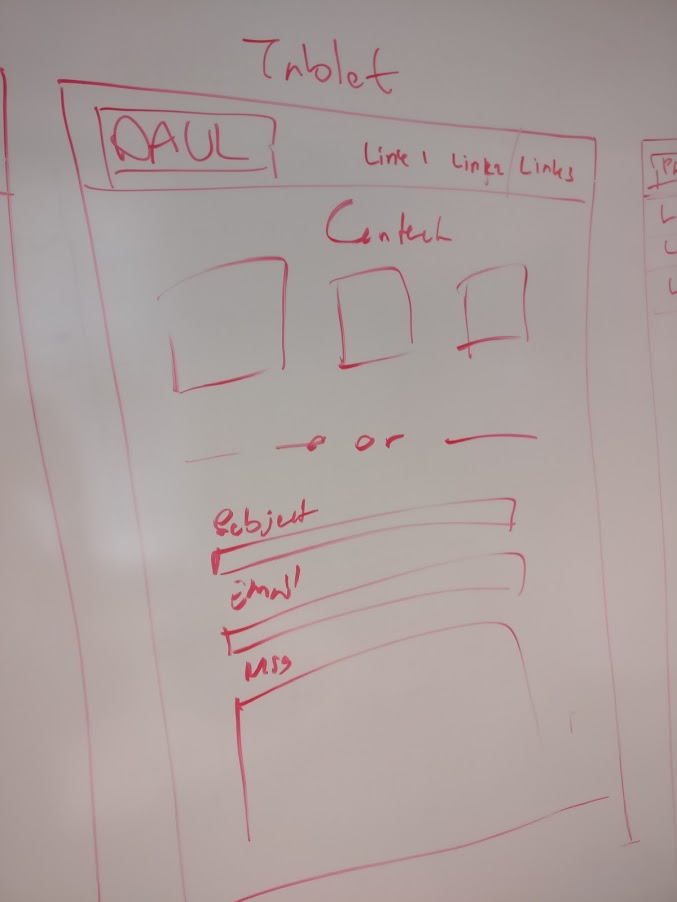 Tablet
PAUL
Link 1 Link2 Link3
Contact
or
Subject
Email
Msg